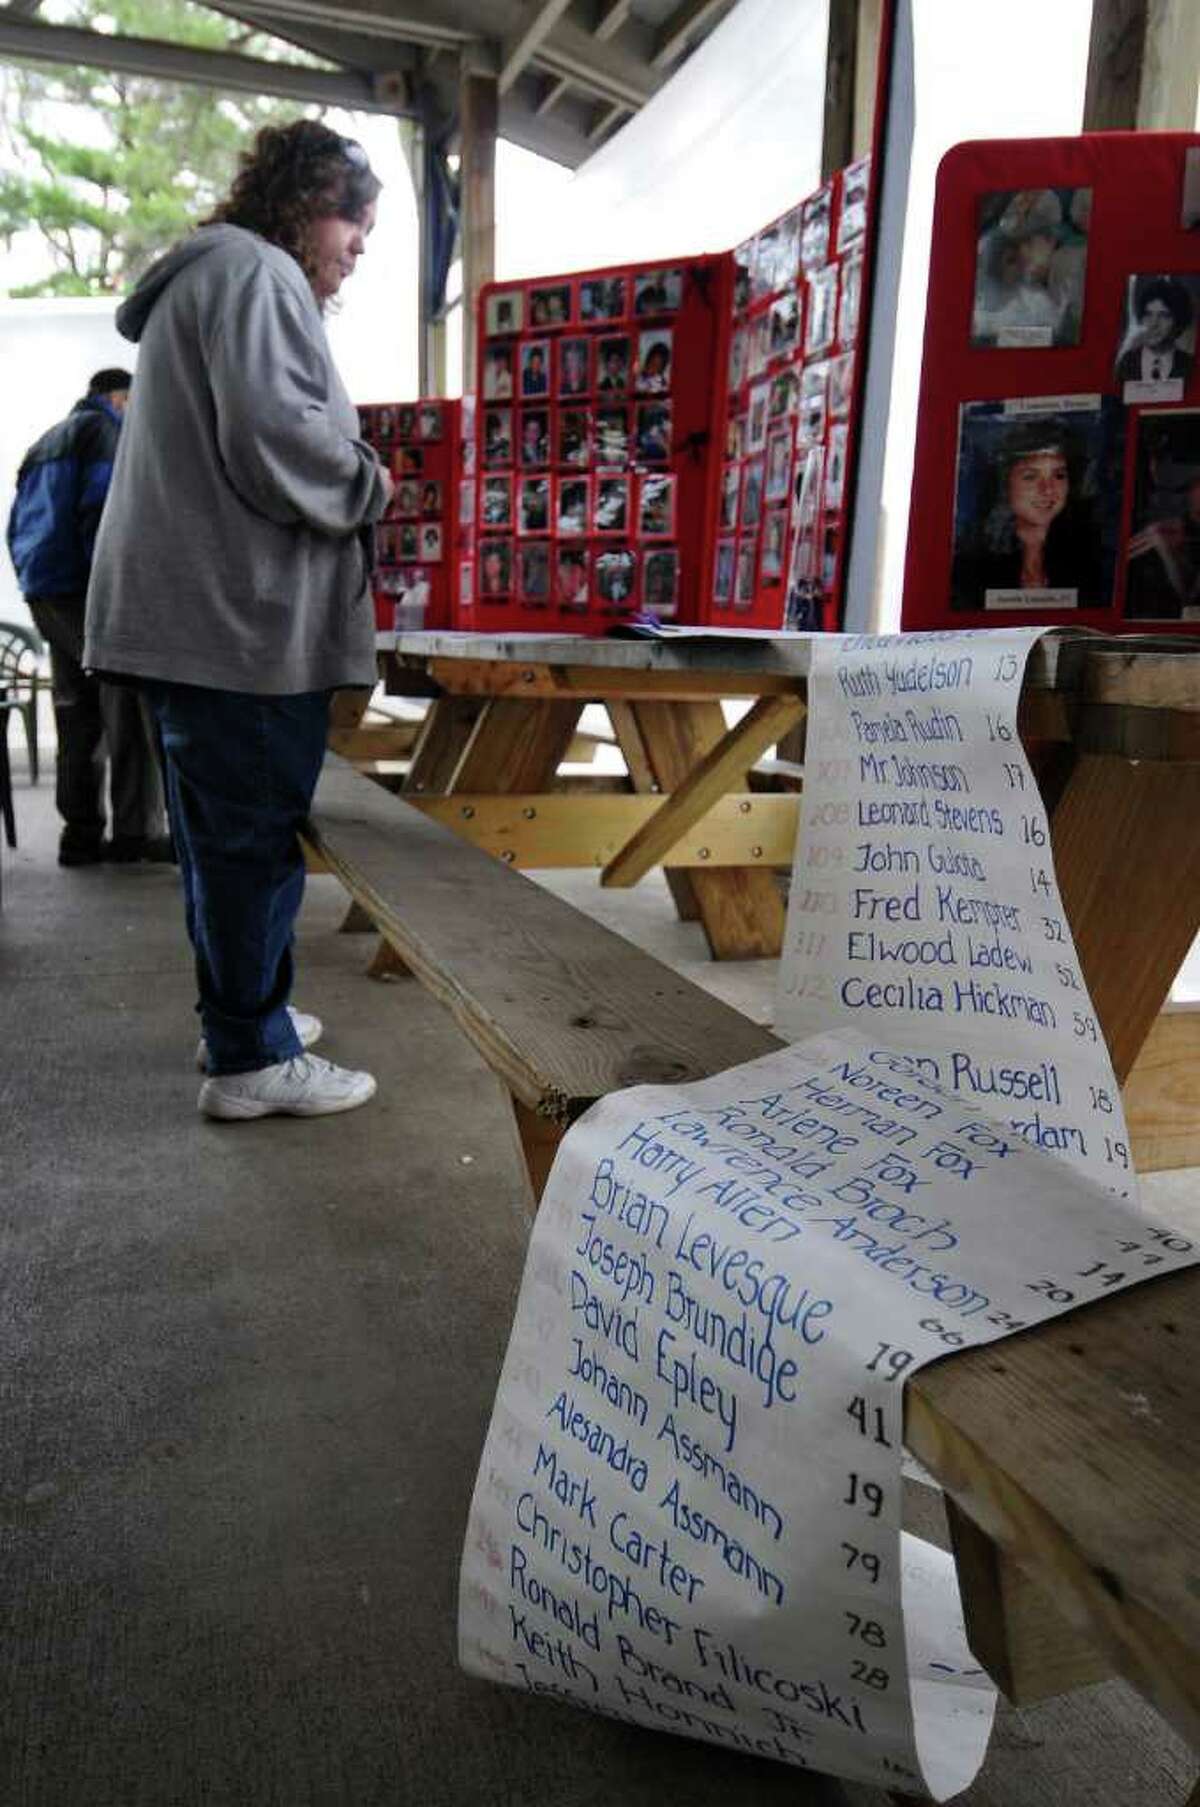 Ruth Yudelson 13
Pamela Rudin 16
107 Mr. Johnson 17
208 Leonard Stevens 16
109 John Gulota 14
110 Fred Kempter 32
111 Elwood Ladew 52
112 Cecilia Hickman 59
Russell 18
rdam 19
Noreen Fox 40
Herman Fox 44
Arlene Fox 14
Ronald Broch 20
Lawrence Anderson 24
Harry Allen 66
Brian Levesque 19
Joseph Brundige 41
David Epley 19
Johann Assmann 79
Alesandra Assmann 78
Mark Carter 28
Christopher Filicoski
Ronald Brand Jr
Keith Hornich